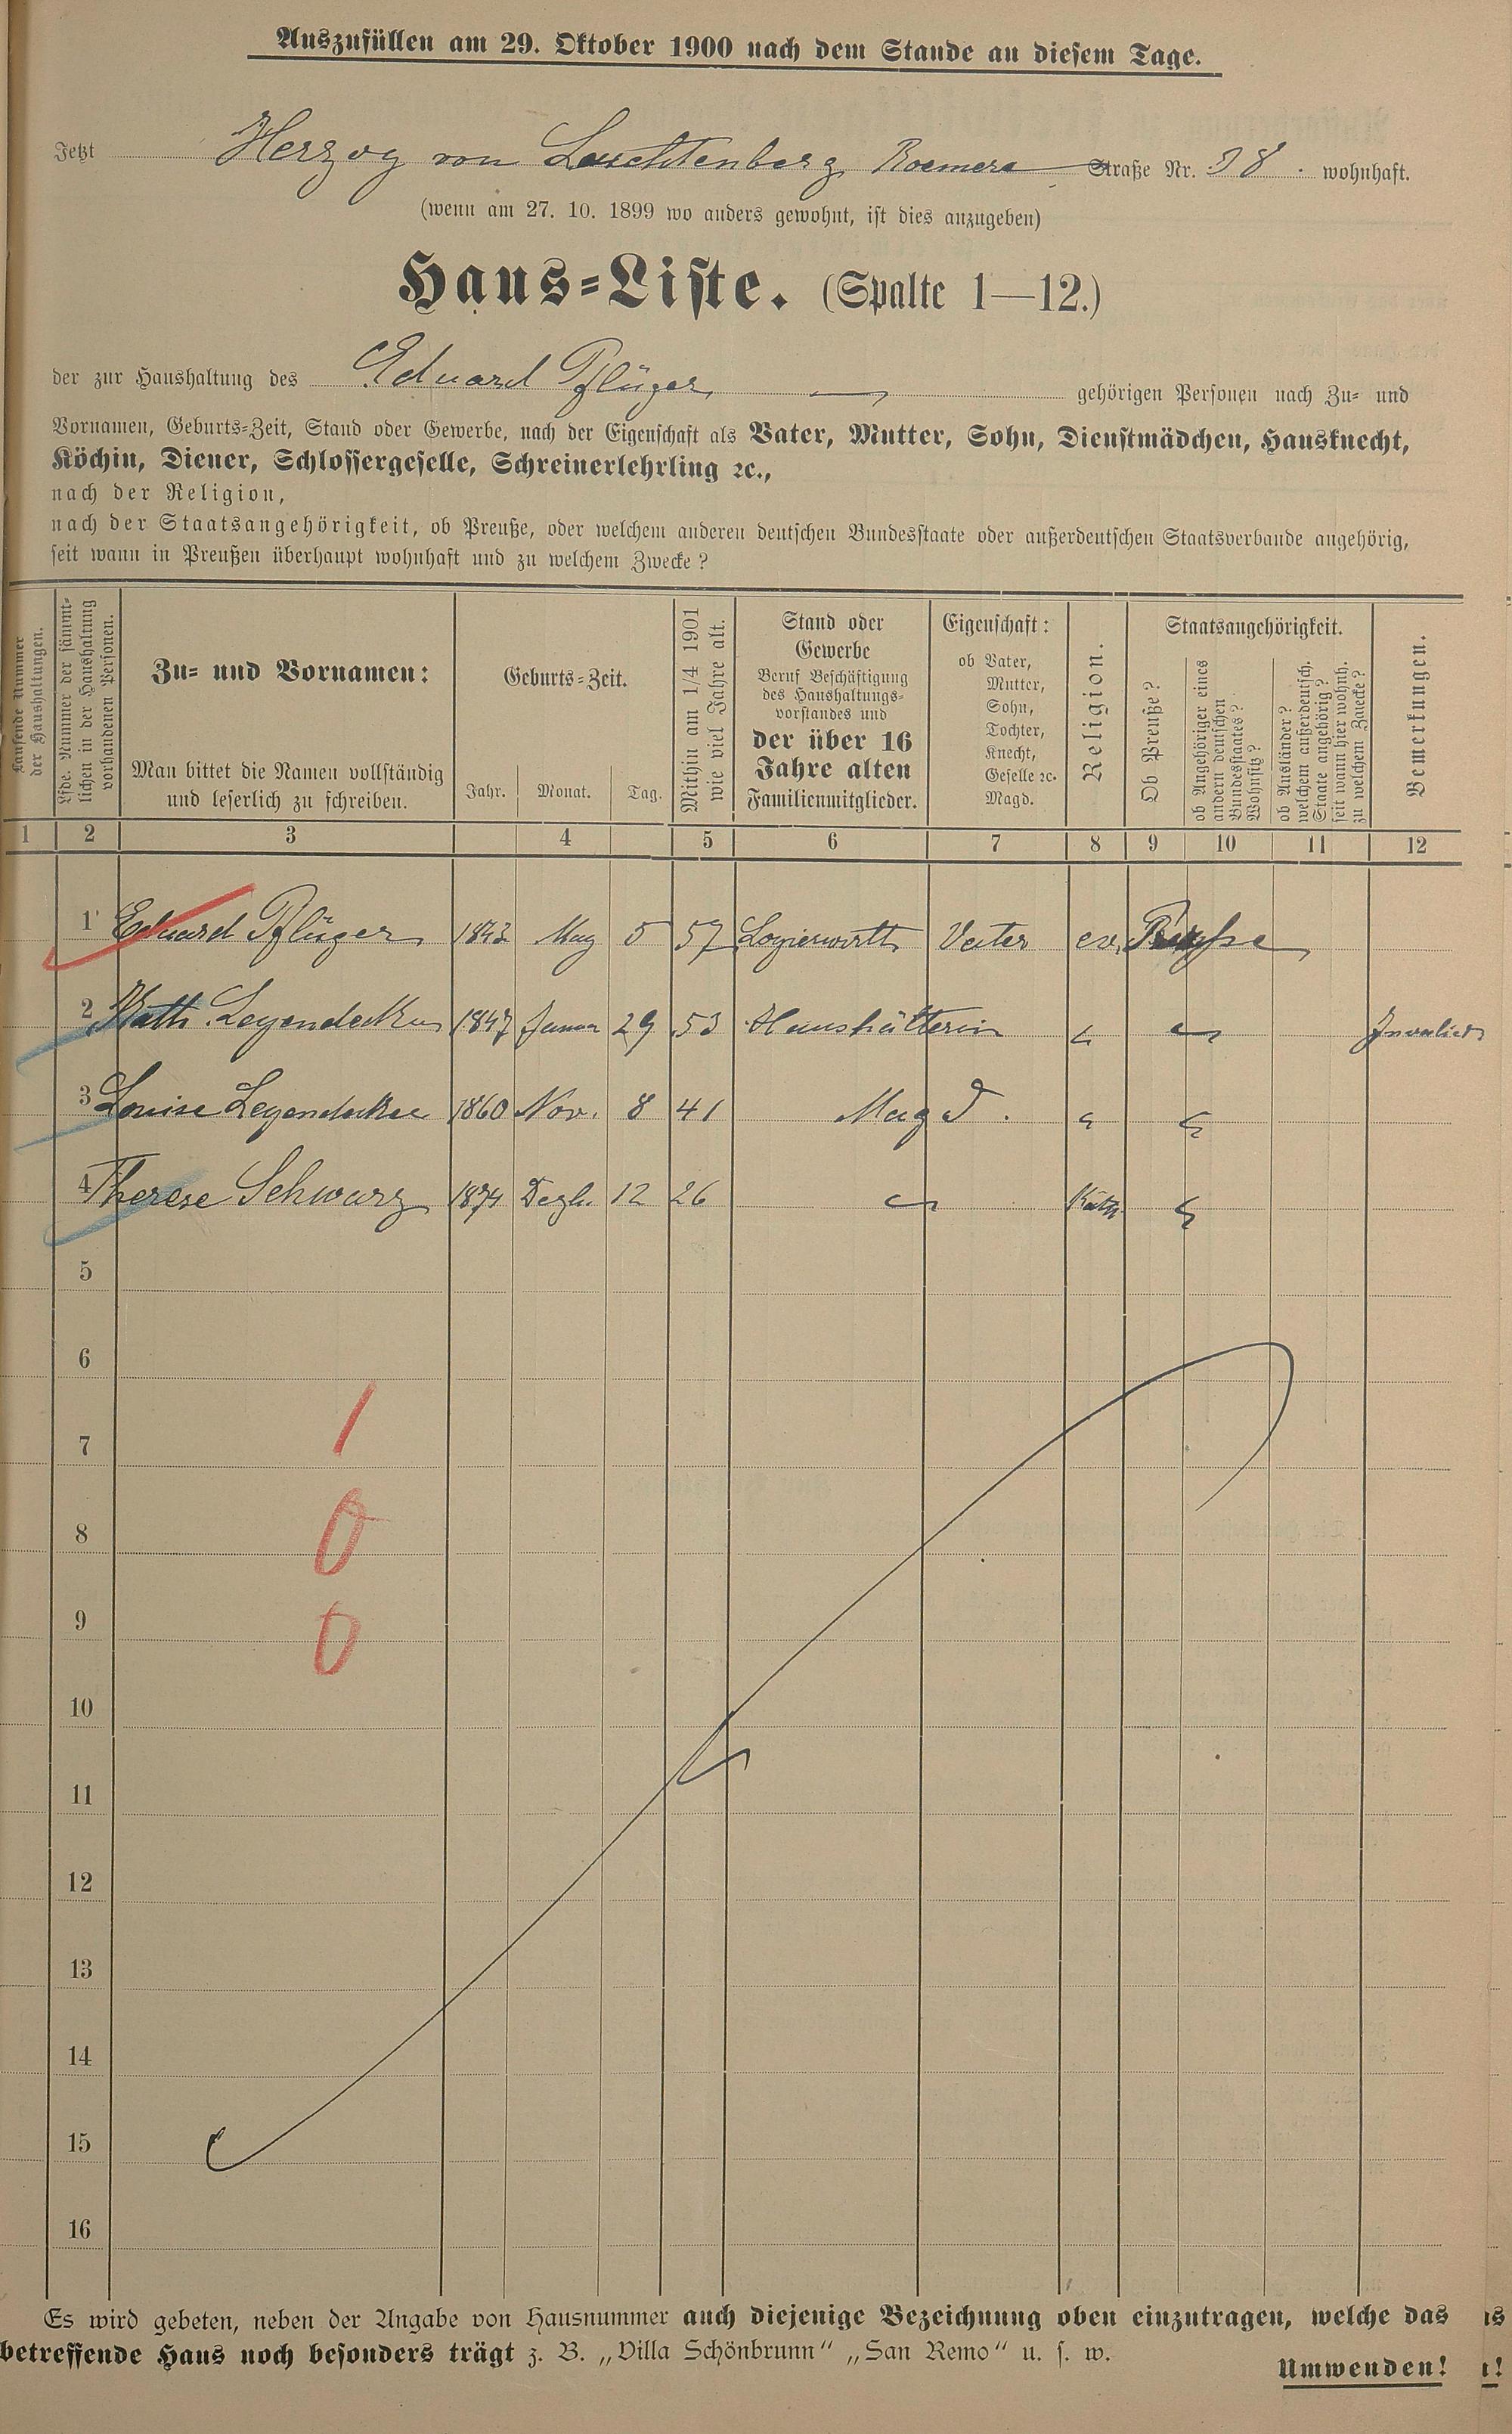 Auszufüllen am 29. Oktober 1900 nach dem Stande an diesem Tage.
Jetzt Herzog von Leuchtenberg Roemer Straße Nr. 38. wohnhaft.
(wenn am 27. 10. 1899 wo anders gewohnt, ist dies anzugeben)
Haus-Liste. (Spalte 1—12.)
der zur Haushaltung des Eduard Pflüger gehörigen Personen nach Zu- und
Vornamen, Geburts-Zeit, Stand oder Gewerbe, nach der Eigenschaft als Vater, Mutter, Sohn, Dienstmädchen, Hausknecht,
Köchin, Diener, Schlossergeselle, Schreinerlehrling ꝛc.,
nach der Religion,
nach der Staatsangehörigkeit, ob Preuße, oder welchem anderen deutschen Bundesstaate oder außerdeutschen Staatsverbande angehörig,
seit wann in Preußen überhaupt wohnhaft und zu welchem Zwecke?
Laufende Nummer
der Haushaltungen.
Lfde. Nummer der sämmt-
lichen in der Haushaltung
vorhandenen Personen.
Zu- und Vornamen:
Man bittet die Namen vollständig
und leserlich zu schreiben.
Geburts-Zeit.
Jahr. Monat. Tag.
Mithin am 1/4 1901
wie viel Jahre alt.
Stand oder
Gewerbe
Beruf Beschäftigung
des Haushaltungs-
vorstandes und
der über 16
Jahre alten
Familienmitglieder.
Eigenschaft:
ob Vater,
Mutter,
Sohn,
Tochter,
Knecht,
Geselle ꝛc.
Magd.
Religion.
Staatsangehörigkeit.
Ob Preuße?
ob Angehöriger eines
andern deutschen
Bundesstaates?
Wohnsitz?
ob Ausländer?
welchem außerdeutsch.
Staate angehörig?
seit wann hier wohnh.
zu welchem Zwecke?
Bemerkungen.
1 2 3 4 5 6 7 8 9 10 11 12
1 Eduard Pflüger 1843 May 5 57 Logierwirth Vater ev. Preuße
2 Kath. Leyendecker 1847 Januar 29 53 Haushälterin " " Invalied
3 Louise Leyendecker 1860 Nov. 8 41 Magd. " "
4 Therese Schwarz 1874 Dezb. 12 26 " Kath. "
5
6
7 1
8 0
9 0
10
11
12
13
14
15
16
Es wird gebeten, neben der Angabe von Hausnummer auch diejenige Bezeichnung oben einzutragen, welche das
betreffende Haus noch besonders trägt z. B. „Villa Schönbrunn“ „San Remo“ u. s. w.
Umwenden!